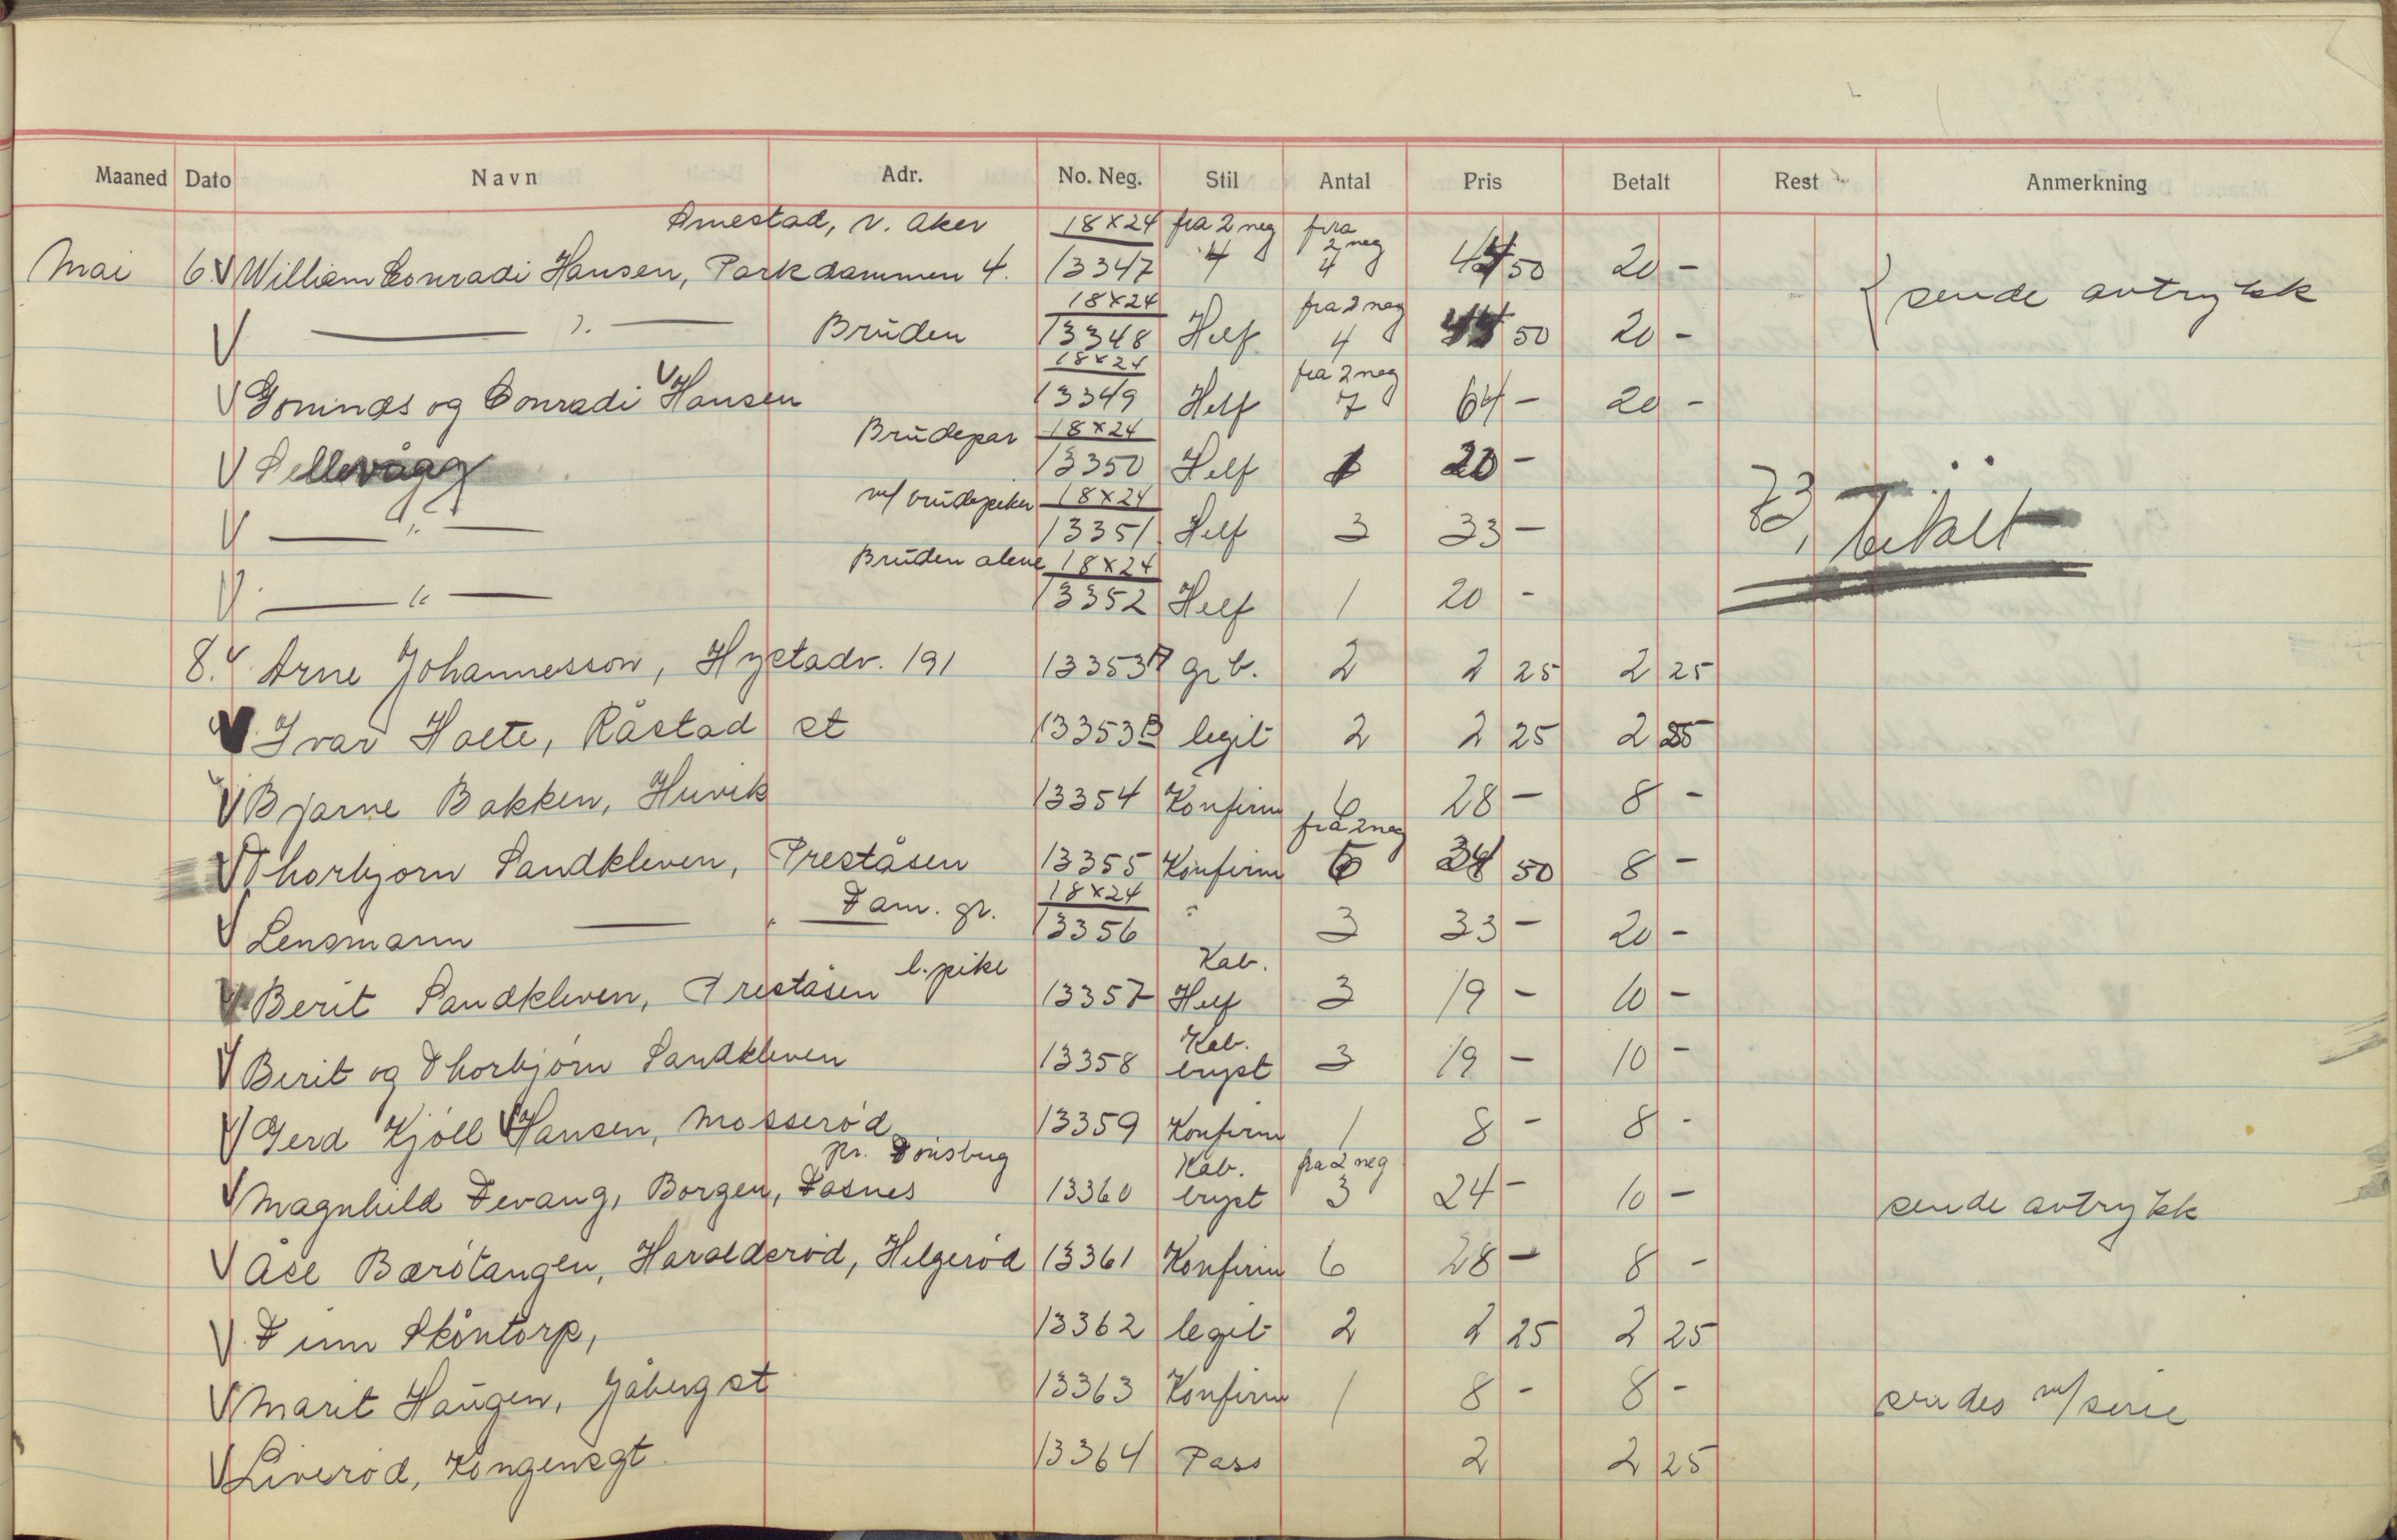 Maaned Dato Navn Adr. No. Neg. Stil Antal Pris Betalt Rest Anmerkning
Arnestad, v. Aker 18x24 fra 2 neg fra 2 neg
Mai 6. V William Conradi Hansen, Parkdammen 4. 13347 4 4 44 50 20 - { sende avtrykk
18x24 fra 2 neg
V — " — Bruden 13348 Helf 4 44 50 20 -
18x24 fra 2 neg
V Gominæs og Conradi V Hansen 13349 Helf 7 64 - 20 -
Brudepar 18x24
V Sellevågg 13350 Helf 1 20 -
m/ brudepiker 18x24 73, - betalt
V — " — 13351 Helf 3 33 -
Bruden alene 18x24
V — " — 13352 Helf 1 20 -
8. V Arne Johannesson, Hystadv. 191 13353A gr b. 2 2 25 2 25
V Ivar Holte, Råstad st 13353B legit 2 2 25 2 25
V Bjarne Bakken, Huvik 13354 Konfirm 6 28 - 8 -
fra 2 neg
V Thorbjørn Sandkleven, Preståsen 13355 Konfirm 6 34 50 8 -
Fam. gr. 18x24
V Lensmann — " — 13356 " 3 33 - 20 -
l. pike Kab.
V Berit Sandkleven, Preståsen 13357 Helf 3 19 - 10 -
Kab.
V Berit og Thorbjørn Sandkleven 13358 bryst 3 19 - 10 -
V Gerd Kjöll V Hansen, Mosserød 13359 Konfirm 1 8 - 8 -
pr. Tønsbrg Kab. fra 2 neg
V Magnhild Tevang, Borgen, Fosnes 13360 bryst 3 24 - 10 - sende avtrykk
V Åse Bærøtangen, Haraldsrød, Helgerød 13361 Konfirm 6 28 - 8 -
V Finn Skøntorp, 13362 legit 2 2 25 2 25
V Marit Haugen, Jåberg st 13363 Konfirm 1 8 - 8 - sendes m/ serie
V Liverød, Kongensgt. 13364 Pass 2 2 25